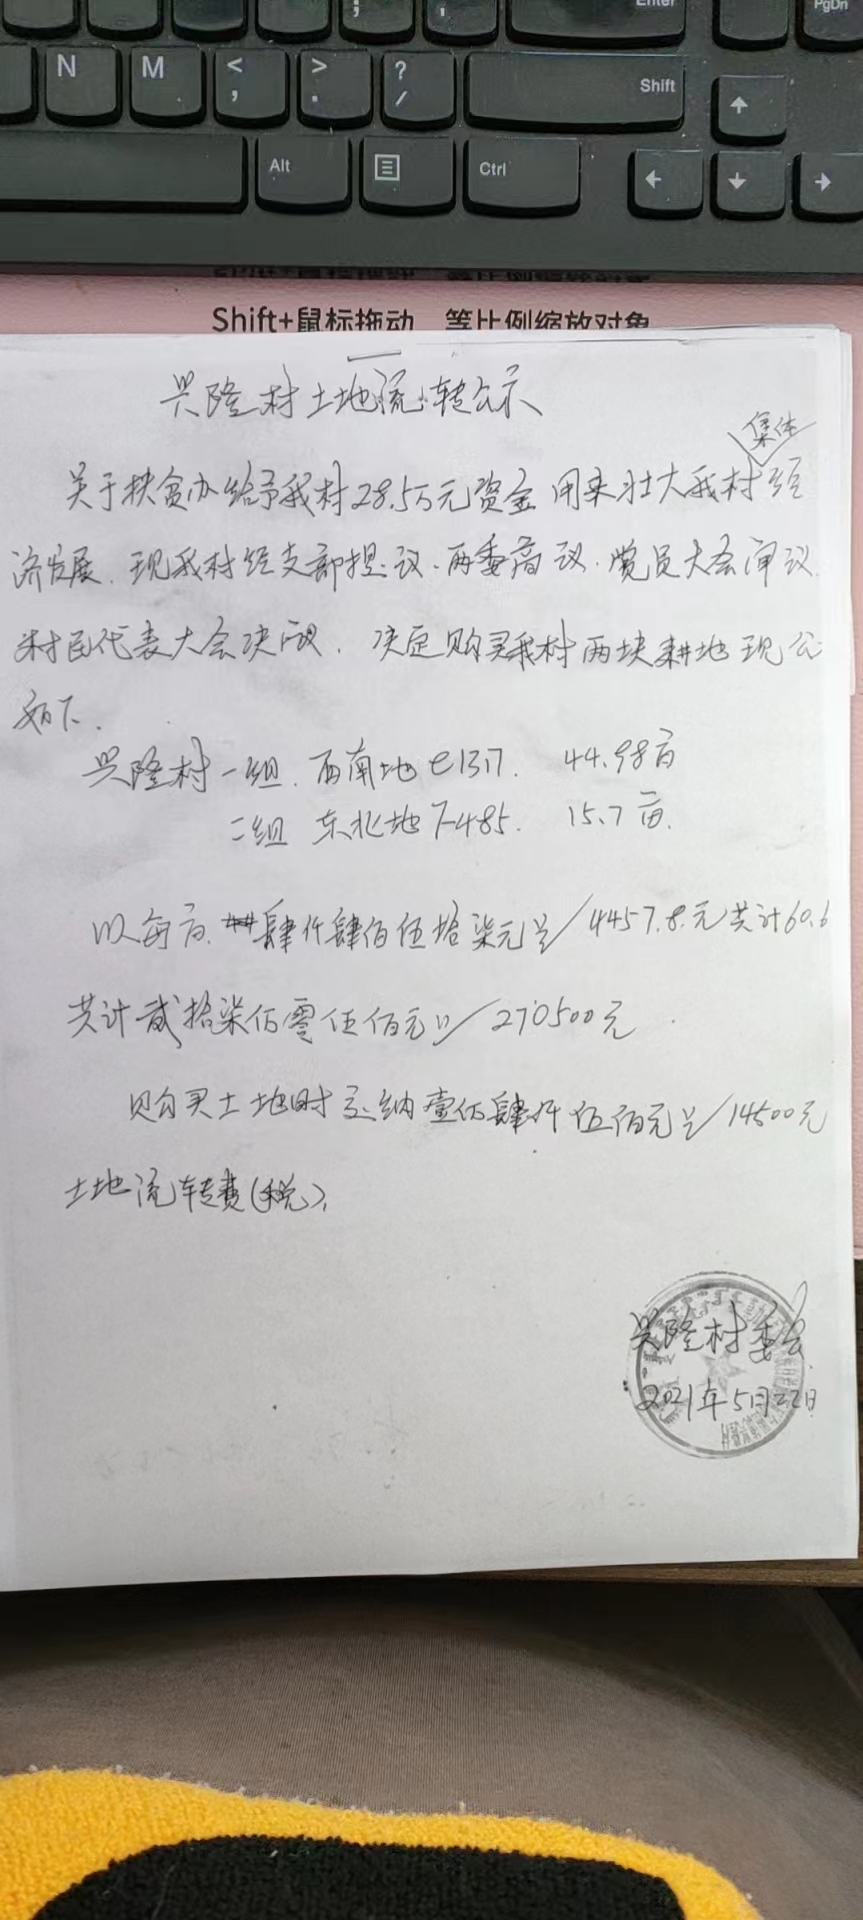 Enter
PgDn
N
M
<
,
>
.
?
/
Shift
Alt
Ctrl
Shift+鼠标拖动 等比例缩放对象
兴隆村土地流转公示
集体
关于扶贫办给予我村28.5万元资金用来壮大我村经
济发展.现我村经支部提议、两委商议.党员大会审议
村民代表大会决议.决定购买我村两块耕地现公
如下.
兴隆村一组.西南地 44.98亩
二组 东北地 15.7亩.
以每亩 肆仟肆佰伍拾柒元 4457.8.元共计60.6
共计贰拾柒佰零伍佰元 270500元
购买土地时交纳壹佰肆仟伍佰元 14500元
土地流转费(税).
兴隆村委会
2021年5月22日